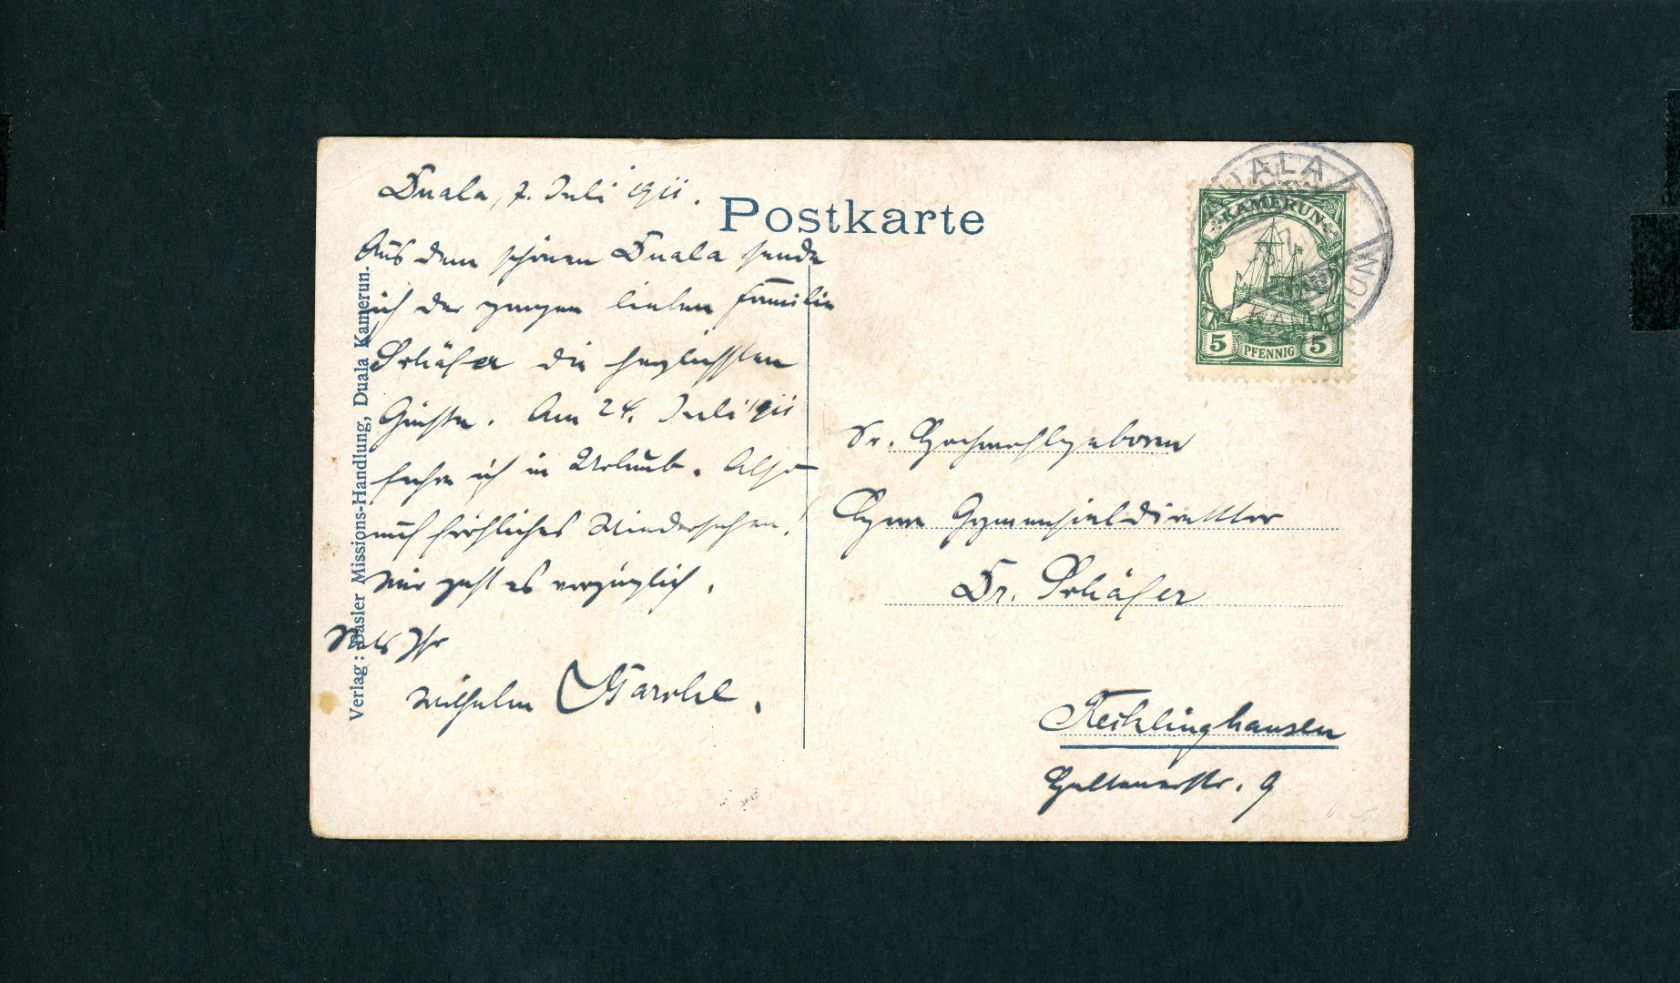 Duala, 7. Juli 1911.
Postkarte
Aus dem schönen Duala sende
ich der ganzen lieben Familie
Schäfer die herzlichsten
Grüße. Am 24. Juli 1911
fahre ich in Urlaub. Also
auf fröhliches Wiedersehen!
Mir geht es vorzüglich.
Stets Ihr
Wilhelm
Verlag: Basler Missions-Handlung, Duala Kamerun.
DUALA
KAMERUN
5 PFENNIG 5
Sr. Hochwohlgeboren
Herrn Gymnasialdirektor
Dr. Schäfer
Recklinghausen
9